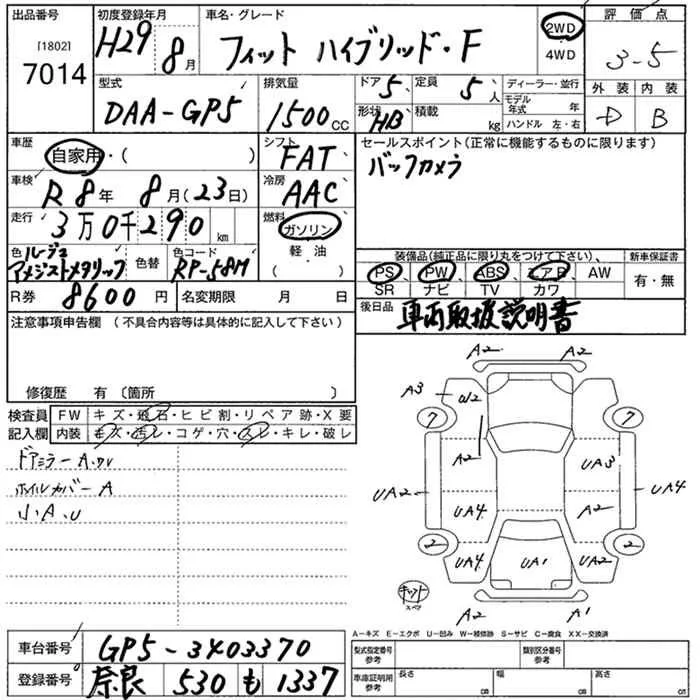 出品番号 初度登録年月 車名・グレード 評価点
[1802]
7014
H29 8月
フィット ハイブリッド・F
2WD
4WD
3-5
型式 排気量 ドア 定員 ディーラー・並行 外装 内装
DAA-GP5 1500cc 5 5人
モデル年式 年
形状 HB 積載 kg ハンドル 左・右
D B
車歴 自家用・( ) シフト FAT
セールスポイント(正常に機能するものに限ります)
バックカメラ
車検 R8年 8月(23日) 冷房 AAC
走行 3万0千290km 燃料 ガソリン
軽・油
( )
色 ルージュアメジストメタリック 色替 色コード RP-58M
装備品(純正品に限り丸をつけて下さい)、 新車保証書
PS PW ABS エアB AW 有・無
SR ナビ TV カワ
R券 8600円 名変期限 月 日
後日品 車両取扱説明書
注意事項申告欄 (不具合内容等は具体的に記入して下さい)
修復歴 有 (箇所 )
検査員 FW キズ・飛石・ヒビ割・リペア跡・X要
記入欄 内装 キズ・汚レ・コゲ・穴・スレ・キレ・破レ
ドアミラーA.
ホイルカバーA
小A.U
A2 A2
A3 W2
7 7
A2 UA3
UA2 UA4
UA4 A2
2 2
UA4 UA1 UA2
キット
スペア
A2 A1
A-キズ E-エクボ U-凹み W-補修跡 S-サビ C-腐食 XX-交換済
車台番号 GP5-3403370
型式指定番号 参考 類別区分番号 参考
登録番号 奈良 530 も 1337
車庫証明用 参考 長さ cm 幅 cm 高さ cm